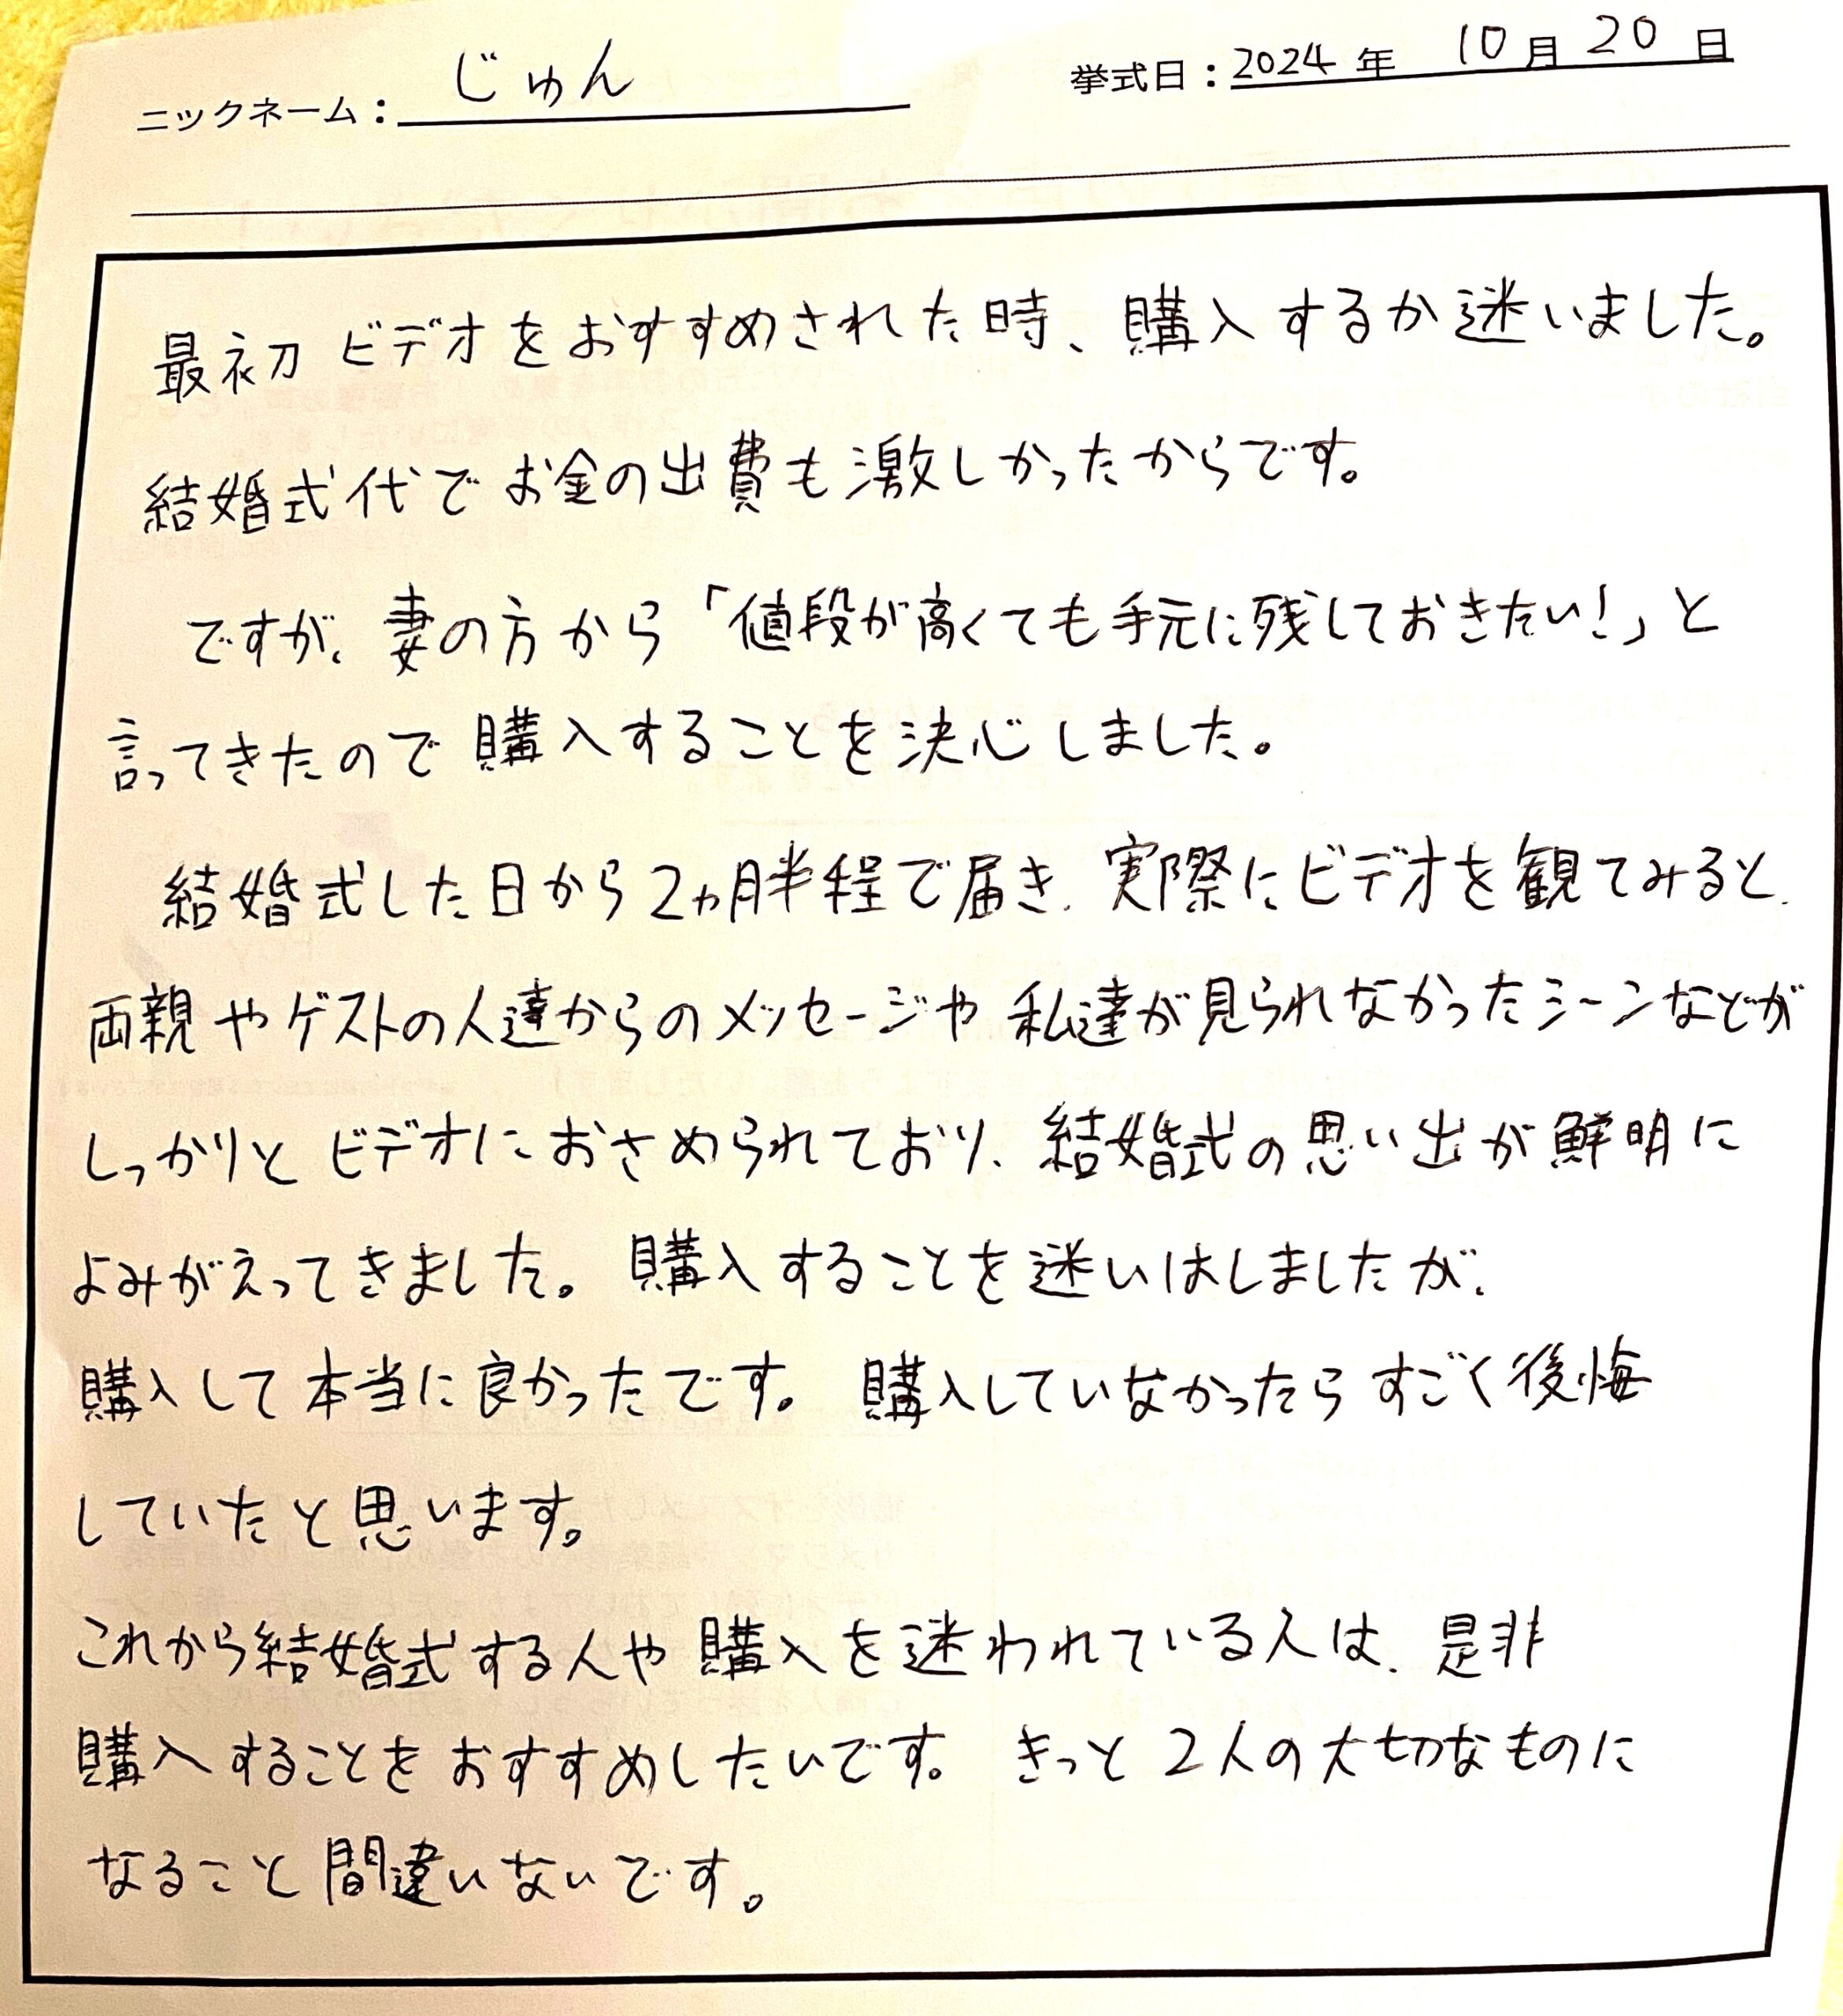 ニックネーム：じゅん
挙式日：2024年 10月 20日
最初 ビデオをおすすめされた時、購入するか迷いました。
結婚式代でお金の出費も激しかったからです。
ですが、妻の方から「値段が高くても手元に残しておきたい！」と
言ってきたので購入することを決心しました。
結婚式した日から2ヵ月半程で届き、実際にビデオを観てみると、
両親やゲストの人達からのメッセージや私達が見られなかったシーンなどが
しっかりとビデオにおさめられており、結婚式の思い出が鮮明に
よみがえってきました。購入することを迷いはしましたが、
購入して本当に良かったです。購入していなかったらすごく後悔
していたと思います。
これから結婚式する人や購入を迷われている人は、是非
購入することをおすすめしたいです。きっと2人の大切なものに
なること間違いないです。